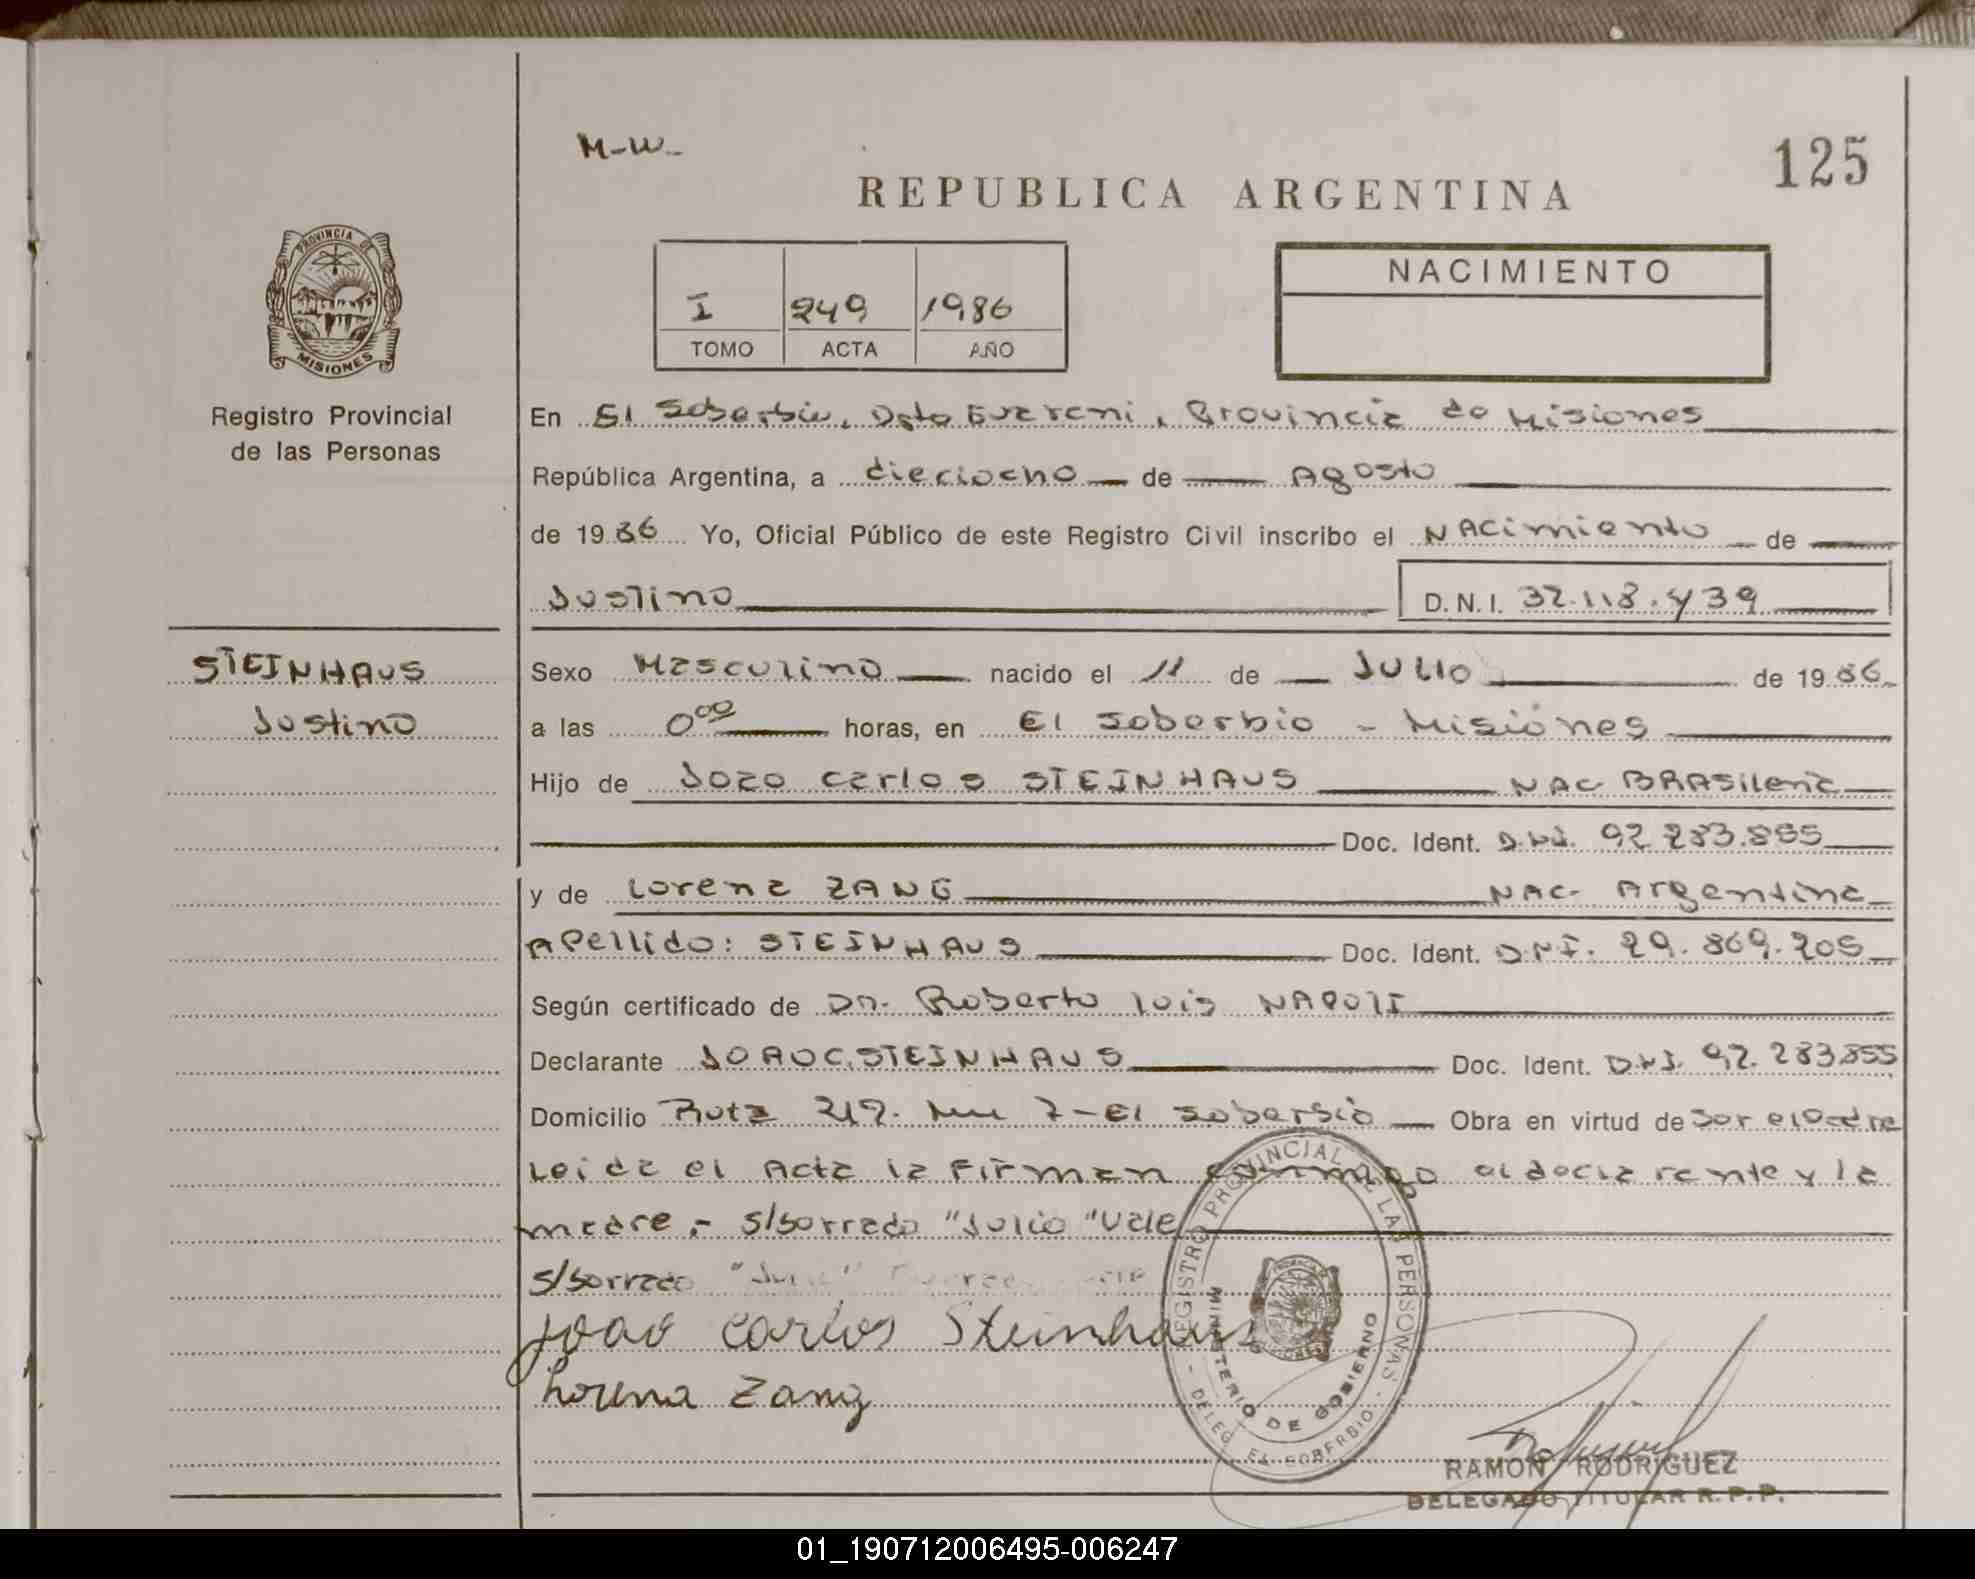 M-W-
125
REPUBLICA ARGENTINA
PROVINCIA DE
MISIONES
Registro Provincial
de las Personas
I 249 1986
TOMO ACTA AÑO
NACIMIENTO
En El Soberbio, Dpto Guarani, Provincia de Misiones
República Argentina, a dieciocho de Agosto
de 1986 Yo, Oficial Público de este Registro Civil inscribo el NACimiento de
Justino D.N.I. 32.118.439
STEINHAUS
Justino
Sexo Masculino nacido el 11 de JULIO de 1986
a las 0⁰⁰ horas, en El Soberbio - Misiones
Hijo de Joao Carlos STEINHAUS NAC BRASilena
Doc. Ident. D.N.I. 92.283.855
y de Lorena ZANG NAC- Argentina
Apellido: STEINHAUS Doc. Ident. D.N.I. 29.869.205
Según certificado de Dr. Roberto Luis NAPOLI
Declarante JOAO C. STEINHAUS Doc. Ident. D.N.I. 92.283.855
Domicilio Ruta 212. km 7-El Soberbio Obra en virtud de Ser el Padre
Leida el Acta la Firman conmigo el declarante y la
madre.- s/borrado "Julio" Vale
s/borrado
Joao Carlos Steinhaus
Lorena Zang
REGISTRO PROVINCIAL DE LAS PERSONAS - DELEG. EL SOBERBIO -
MINISTERIO DE GOBIERNO
RAMON RODRIGUEZ
DELEGADO TITULAR R.P.P.
01_190712006495-006247